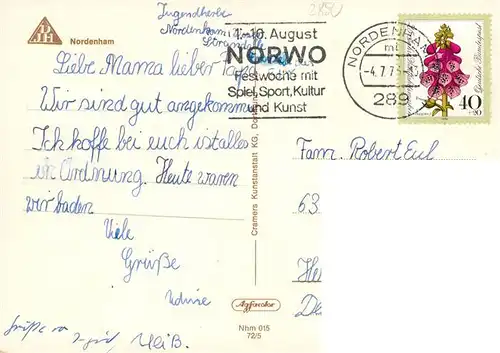 DJH
Nordenham
Jugendherbe
Nordenham
Strandallee
1.-10. August
NORWO
Festwoche mit
Spiel, Sport, Kultur
und Kunst
NORDENHAM
mt
-4.7.75
289
Deutsche Bundespost
40
+20
Liebe Mama lieber Papa
Wir sind gut angekommen
Ich hoffe bei euch ist alles
in Ordnung. Heute waren
wir baden
Viele
Grüße
Grüße
heiß.
Fam. Robert Eul
63
Cramers Kunstanstalt KG, Dortmund
Agfacolor
Nhm 015
72/5